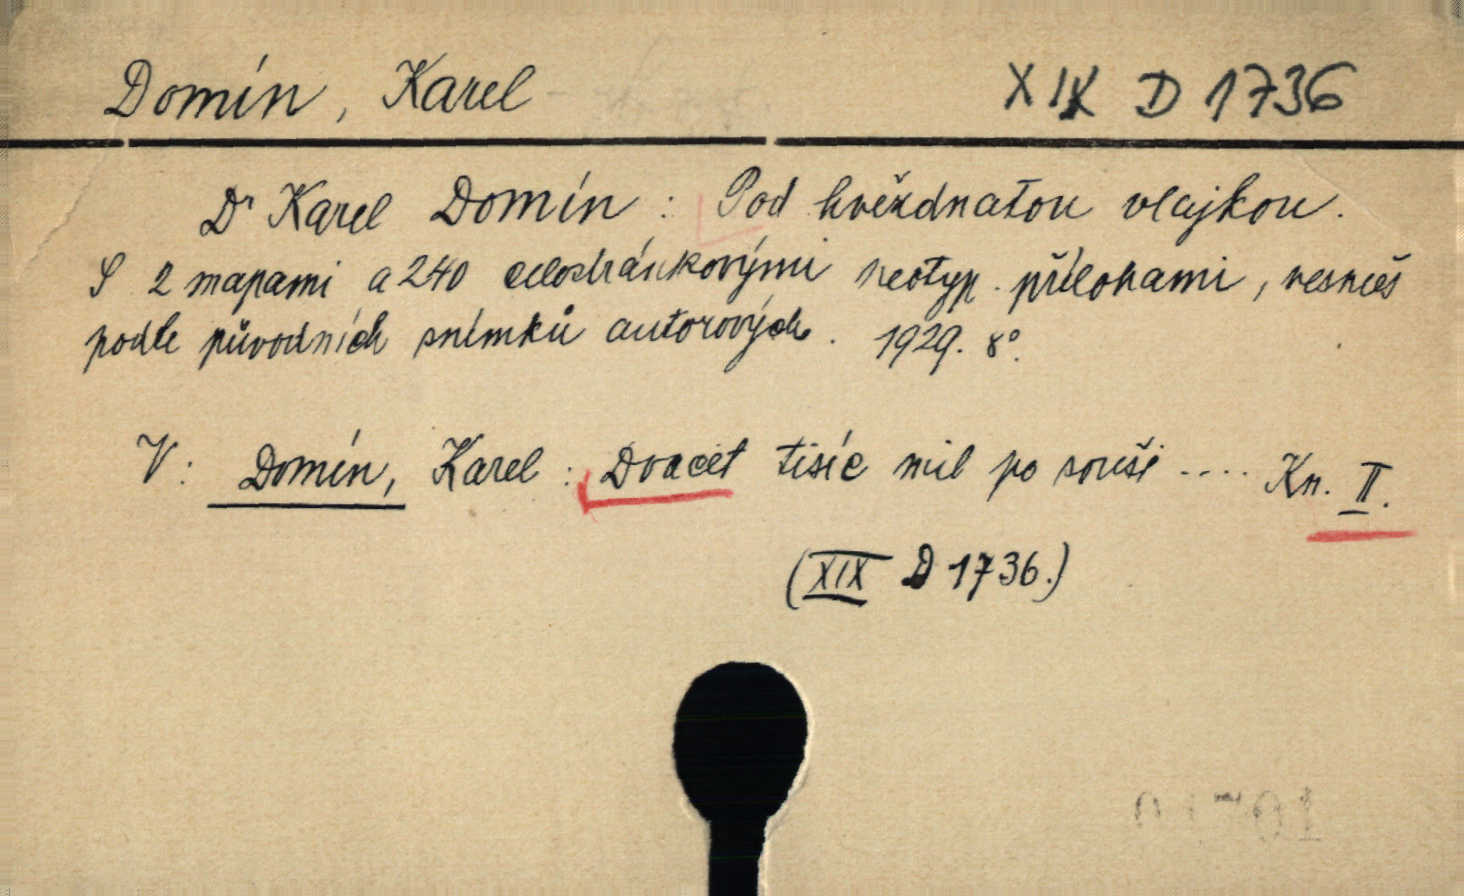 Domín, Karel XIX D 1736
Dr Karel Domín : Pod hvězdnatou vlajkou.
S 2 mapami a 240 celostránkovými neotyp. přílohami, vesměs
podle původních snímků autorových. 1929. 8°.
V: Domín, Karel : Dvacet tisíc mil po souši .... Kn. II.
(XIX D 1736.)